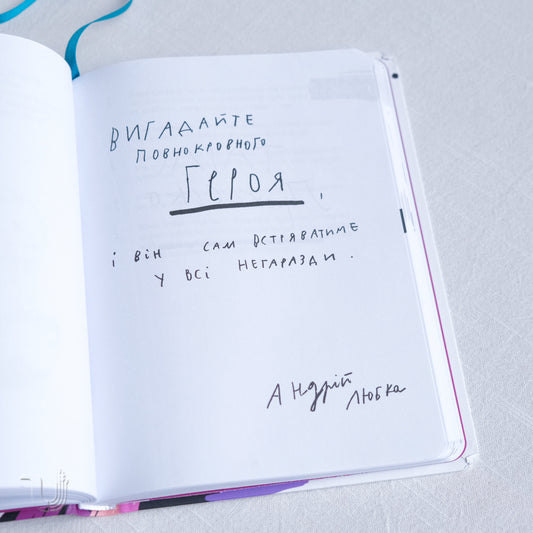 ВИГАДАЙТЕ
ПОВНОКРОВНОГО
ГЕРОЯ,
і ВІН САМ ВСТРЯВАТИМЕ
У ВСІ НЕГАРАЗДИ.
АНДРІЙ
ЛЮБКА